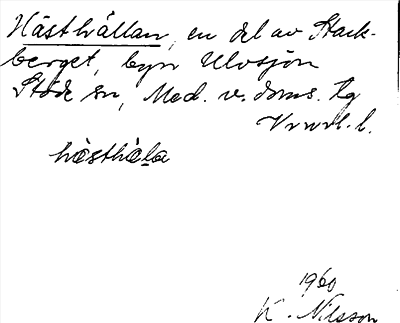 Hästhällan, en del av Stack-
berget, byn Ulvsjön
Stöde sn, Med. v. doms. tg
hästhäla
1960
K. Nilsson